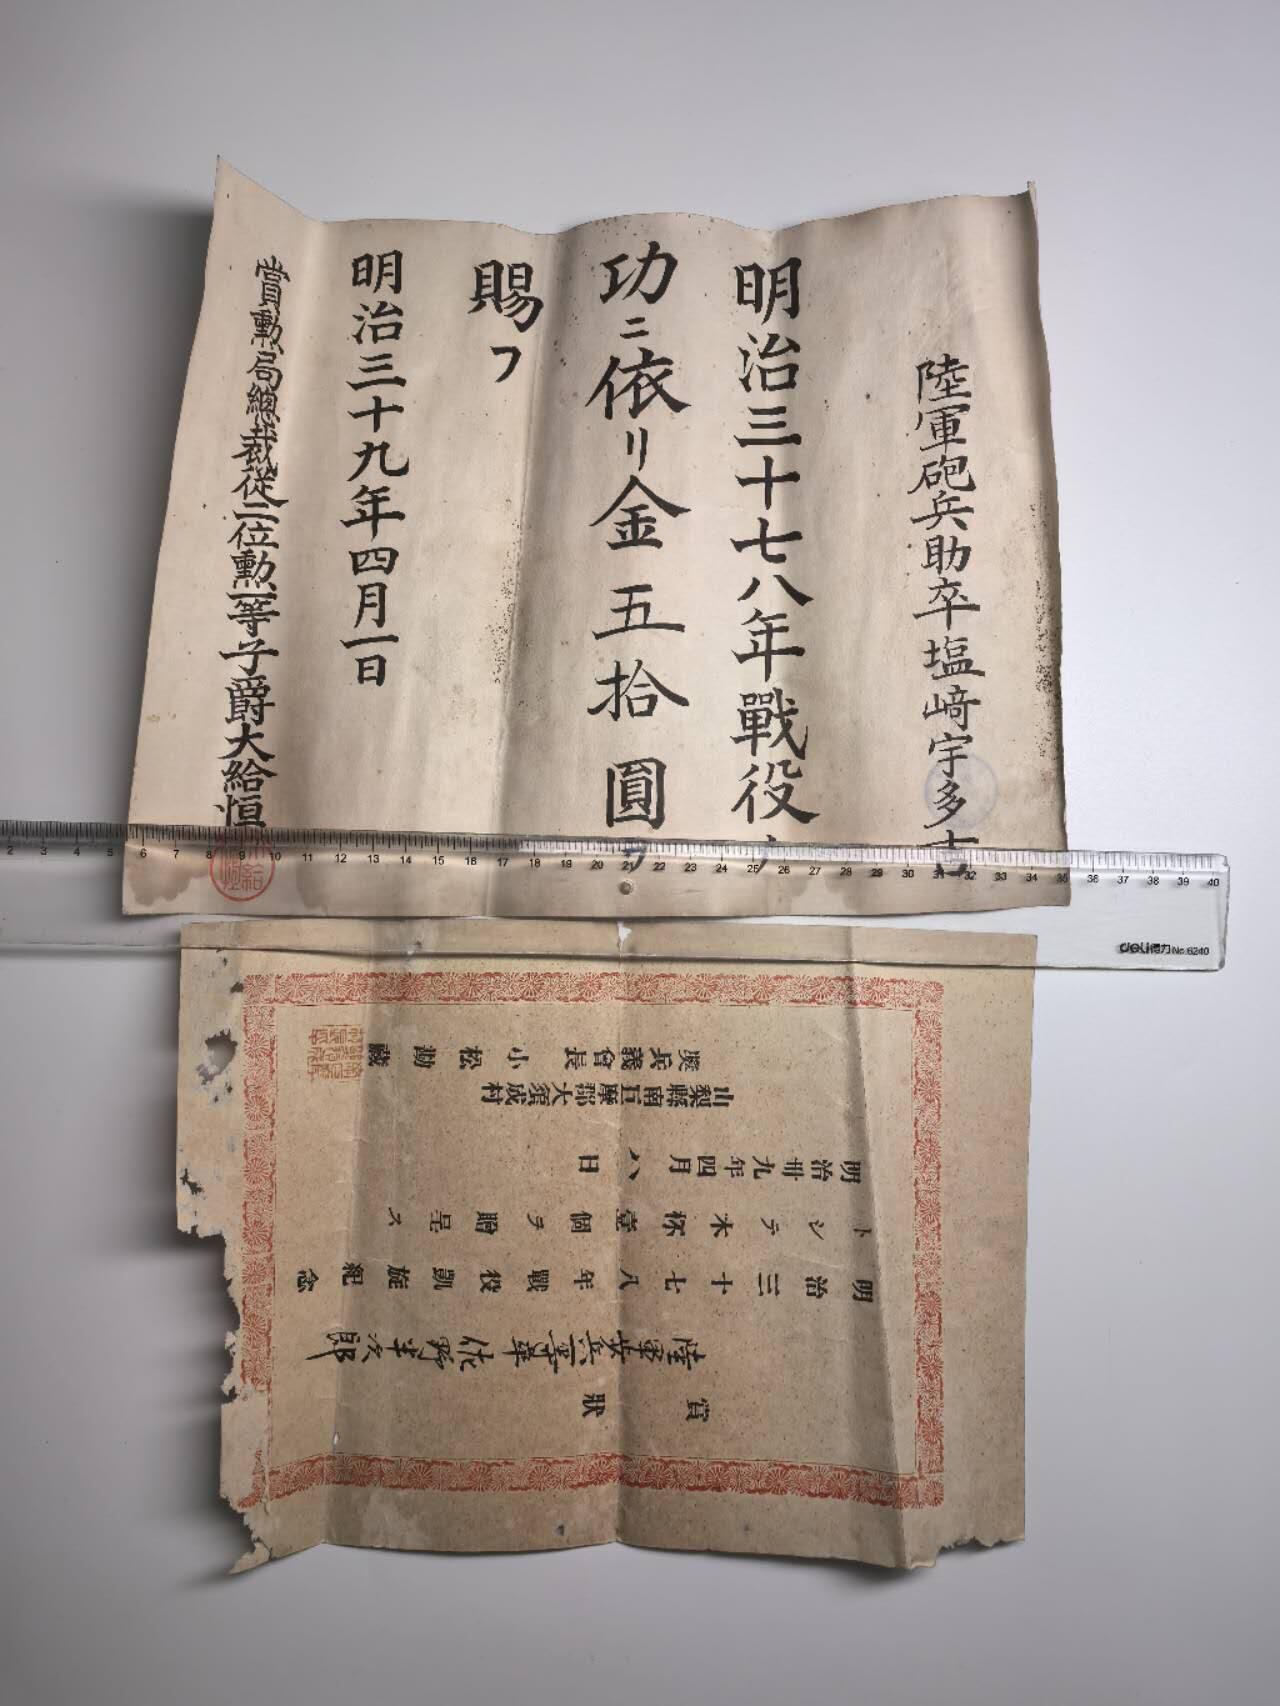 陸軍砲兵助卒塩﨑宇多吉
明治三十七八年戰役ノ
功ニ依リ金五拾圓ヲ
賜フ
明治三十九年四月一日
賞勲局總裁從二位勲一等子爵大給恒
2 3 4 5 6 7 8 9 10 11 12 13 14 15 16 17 18 19 20 21 22 23 24 25 26 27 28 29 30 31 32 33 34 35 36 37 38 39 40
deli得力 No.6240
賞狀
佐野半次郎
明治三十七八年戰役凱旋紀念
トシテ木杯壹個ヲ贈呈ス
明治卅九年四月八日
山梨縣南巨摩郡大須成村
奬兵義會長 小松勘藏